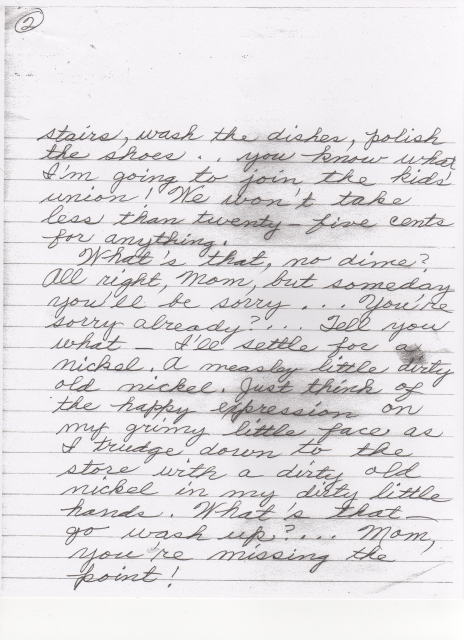 2
stairs, wash the dishes, polish
the shoes . . you know what
I'm going to join the kids'
union! We won't take
less than twenty-five cents
for anything.
What's that, no dime?
All right, Mom, but someday
you'll be sorry . . . You're
sorry already? . . . Tell you
what — I'll settle for a
nickel. A measley little dirty
old nickel. Just think of
the happy expression on
my grimy little face as
I trudge down to the
store with a dirty old
nickel in my dirty little
hands. What's that —
go wash up? . . . Mom,
you're missing the
point!